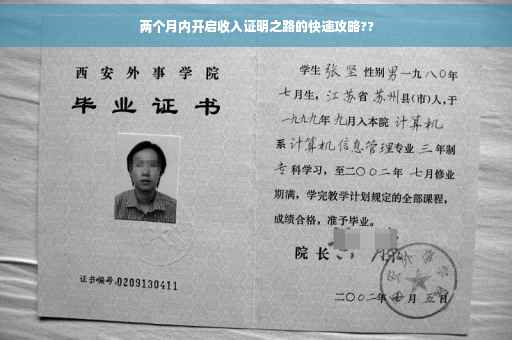 两个月内开启收入证明之路的快速攻略??
西安外事学院
毕业证书
证书编号:0209130411
学生 张坚 性别男一九八〇年
七月生，江苏省苏州县(市)人，于
一九九九年九月入本院 计算机
系计算机信息管理专业 三 年制
专科学习，至二〇〇二年 七月修业
期满，学完教学计划规定的全部课程，
成绩合格，准予毕业。
院长
二〇〇二年 七 月 五 日